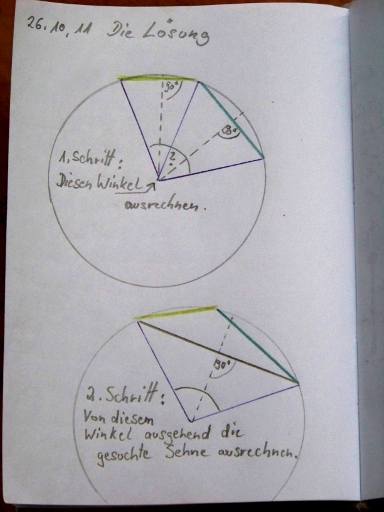 26.10.11 Die Lösung
90°
90°
?
1. Schritt:
Diesen Winkel
ausrechnen.
90°
2. Schritt:
Von diesem
Winkel ausgehend die
gesuchte Sehne ausrechnen.